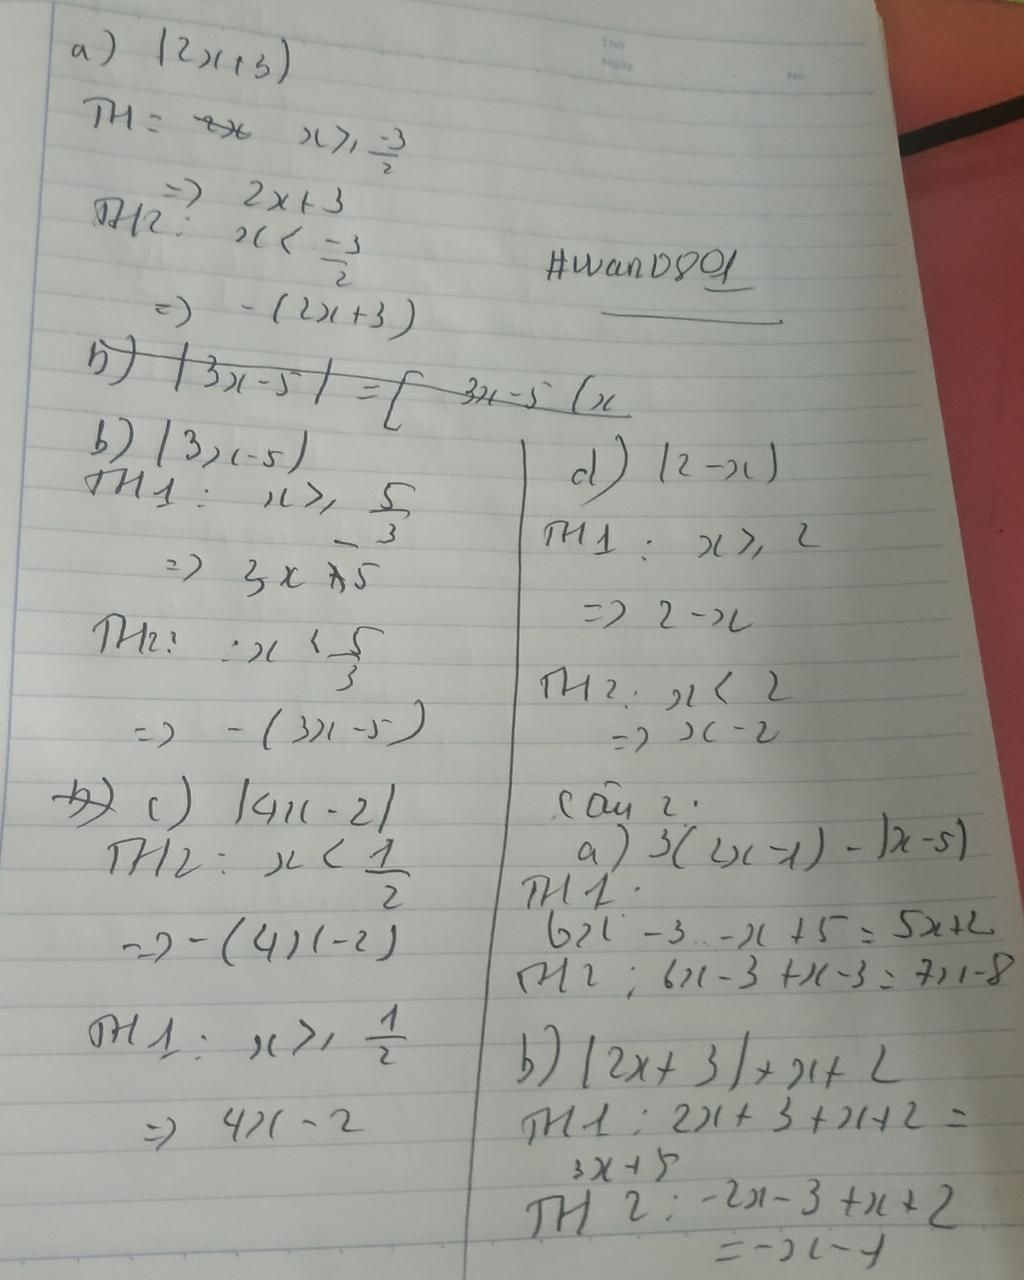 Thứ
Ngày
No.
a) |2x+3|
TH = x ≥ -3/2
=> 2x+3
TH2: x < -3/2
=> -(2x+3)
#wan0801
b) |3x-5| = [ 3x-5 (x
b) |3x-5|
TH1: x ≥ 5/3
=> 3x - 5
TH2: : x < 5/3
=> -(3x-5)
b) c) |4x-2|
TH2: x < 1/2
=> -(4x-2)
TH1: x ≥ 1/2
=> 4x-2
d) |2-x|
TH1: x ≥ 2
=> 2-x
TH2: x < 2
=> x-2
Câu 2:
a) 3(2x-1) - |x-5|
TH1:
6x - 3 - x + 5 = 5x+2
TH2: 6x-3 +x-3 = 7x-8
b) |2x+3| + x + 2
TH1: 2x+3+x+2 =
3x+5
TH2: -2x-3+x+2
= -x-1